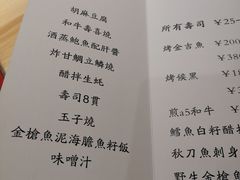 胡麻豆腐
和牛壽喜燒
酒蒸鮑魚配肝醬
炸甘鯛立鱗燒
醋拌生蚝
壽司8貫
玉子燒
金槍魚泥海膽魚籽飯
味噌汁
所有壽司 ¥25-
烤金吉魚 ¥200
¥38
烤候黑 ¥
煎a5和牛 ¥
鱈魚白籽醋拌
秋刀魚刺身
野生金槍魚